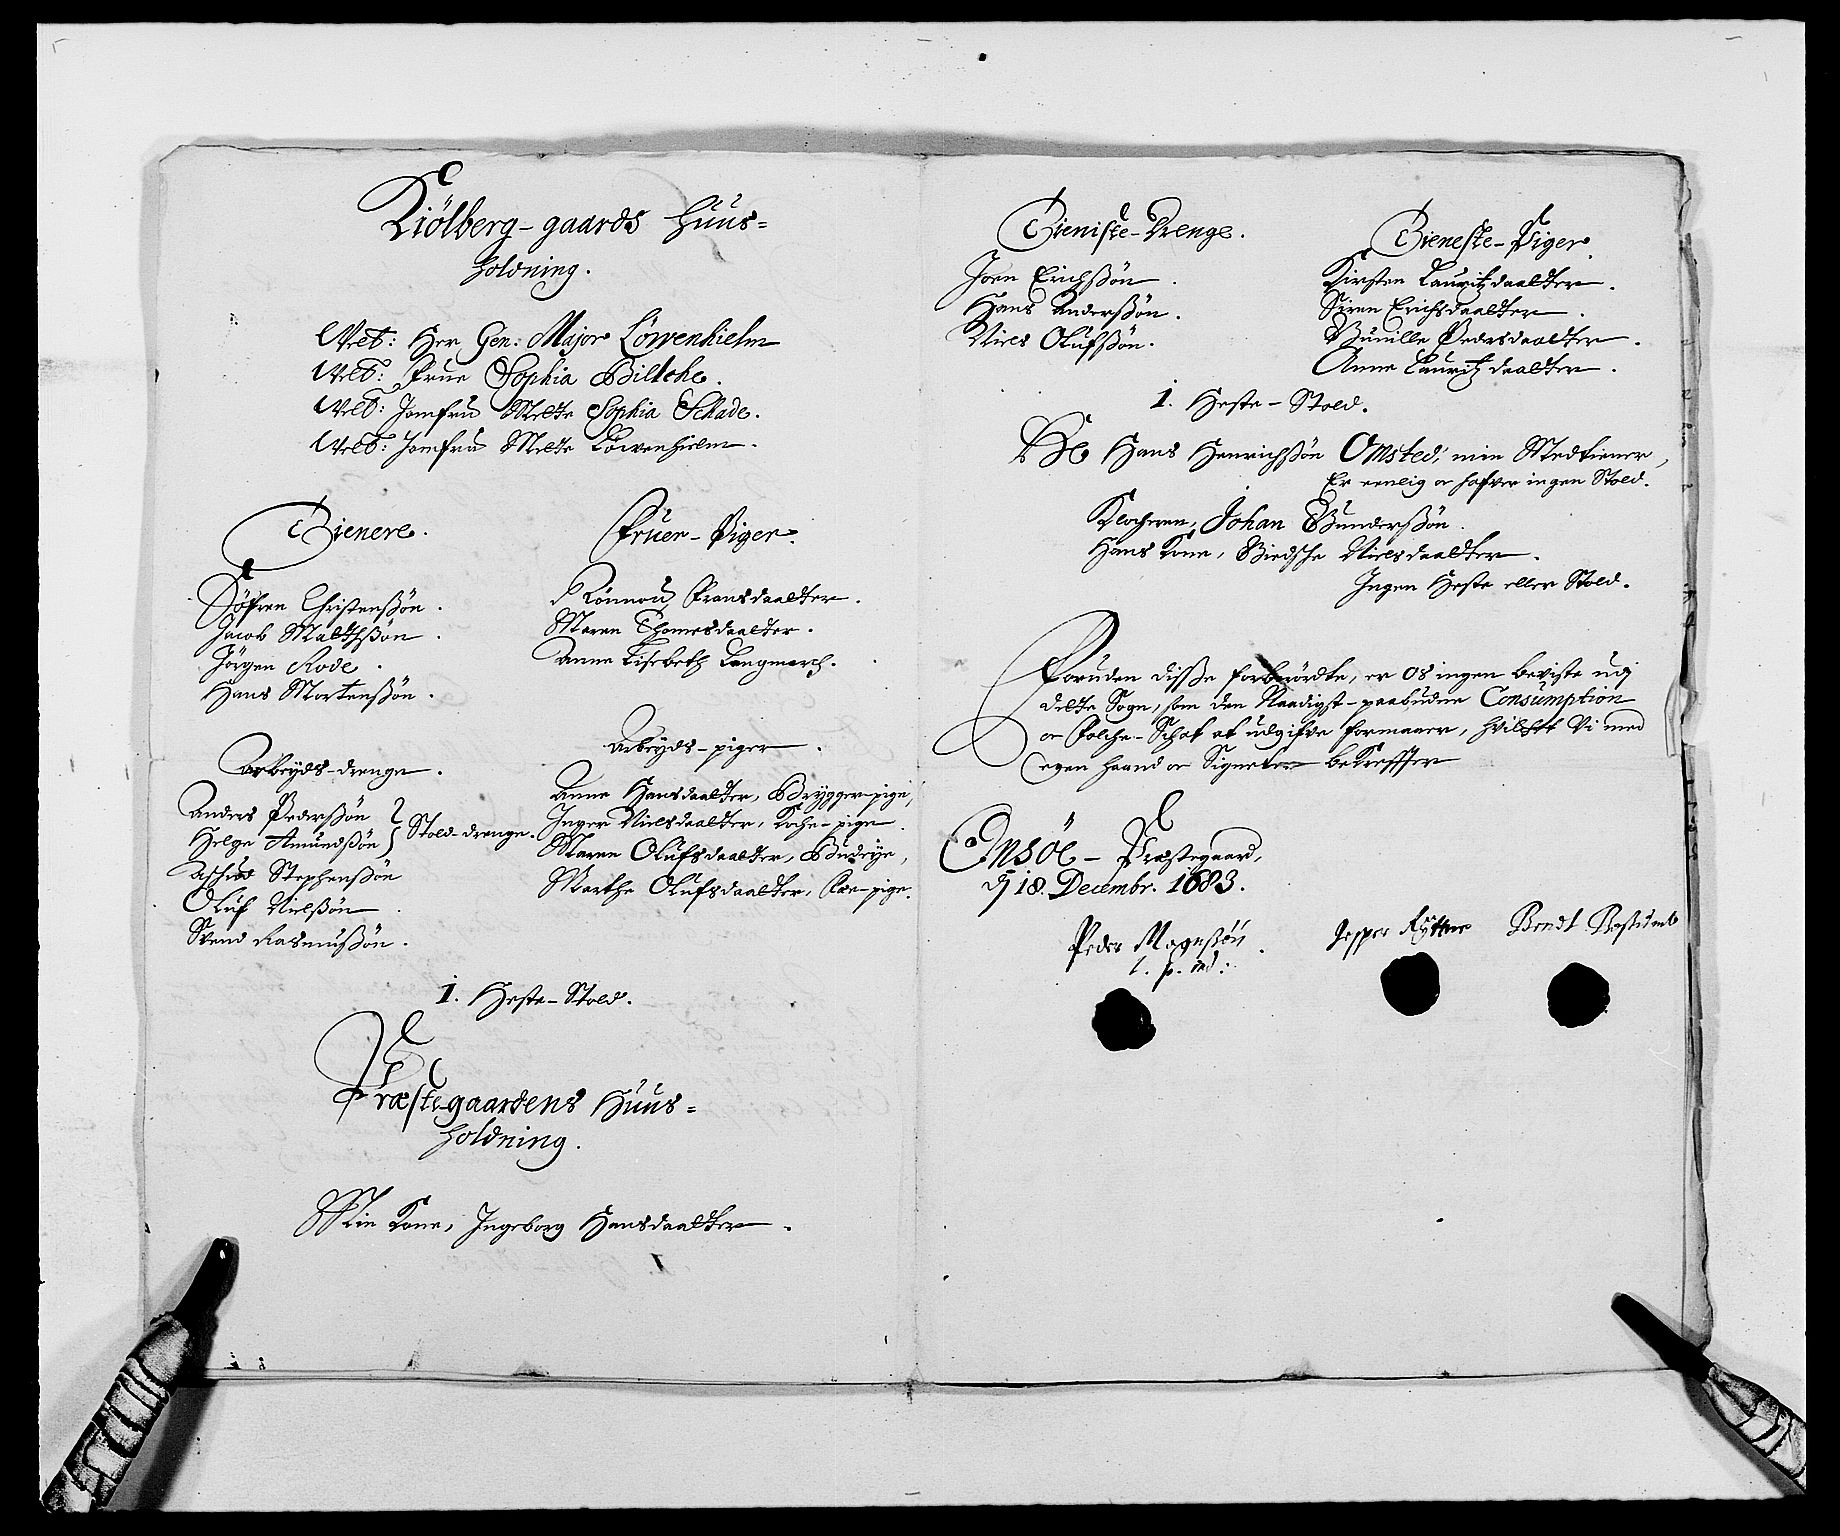 Kiölberg-gaards Huus=
holdning.
Velb: Her Gen: Major Löwenhielm
Velb: Frue Sophia Biltche.
Velb: Jomfru Mette Sophia Schade.
Velb: Jomfru Mette Löwenhielm.
Tienere.
Söfren Christenßön.
Jacob Malthßön.
Jörgen Rode.
Hans Mortenßön.
Fruer-Piger.
Rönnou Fransdaatter.
Maren Thomesdaatter.
Anne Lisebeth Langmarch.
Arbeyds-drenge.
Anders Pederßön
Helge Amundßön } Stald-drenge.
Stephenßön
Oluf Nielßön
Svend Rasmußön.
Arbeyds-piger.
Anne Hansdaatter, Brygger-pige,
Inger Nielsdaatter, Koche-pige.
Maren Olufsdaatter, Budeye,
Marthe Olufsdaatter, Fæ-pige.
1. Heste-Stald.
Præste-gaardens Huus=
holdning.
Min Kone, Ingeborg Hansdaatter.
Tieniste-Drenge.
Joen Erichßön.
Hans Anderßön.
Niels Olufßön.
Tieneste-Piger.
Kirsten Lauritzdaatter.
Siren Erichsdaatter.
Gunille Pedersdaatter.
Anne Lauritzdaatter.
1. Heste-Stald.
Hr Hans Henrichßön Onsted, min Medtiener,
Er eenlig oc hafver ingen Stald.
Klocheren, Johan Gunderßön.
Hans Kone, Nielsdaatter.
Ingen Heste eller Stald.
Foruden disße forberördte, er os ingen beviste udj
dette Sogn, som den Naadigst-paabudne Consumption
oc Folche-Schat at udgifve formaaer, hvilchet Vi med
egen haand oc Signeter bekreffter
Onsöe-Præstegaard,
dj 18. Decembr. 1683.
Peder Magnßön
Jesper Rytter
Bendt